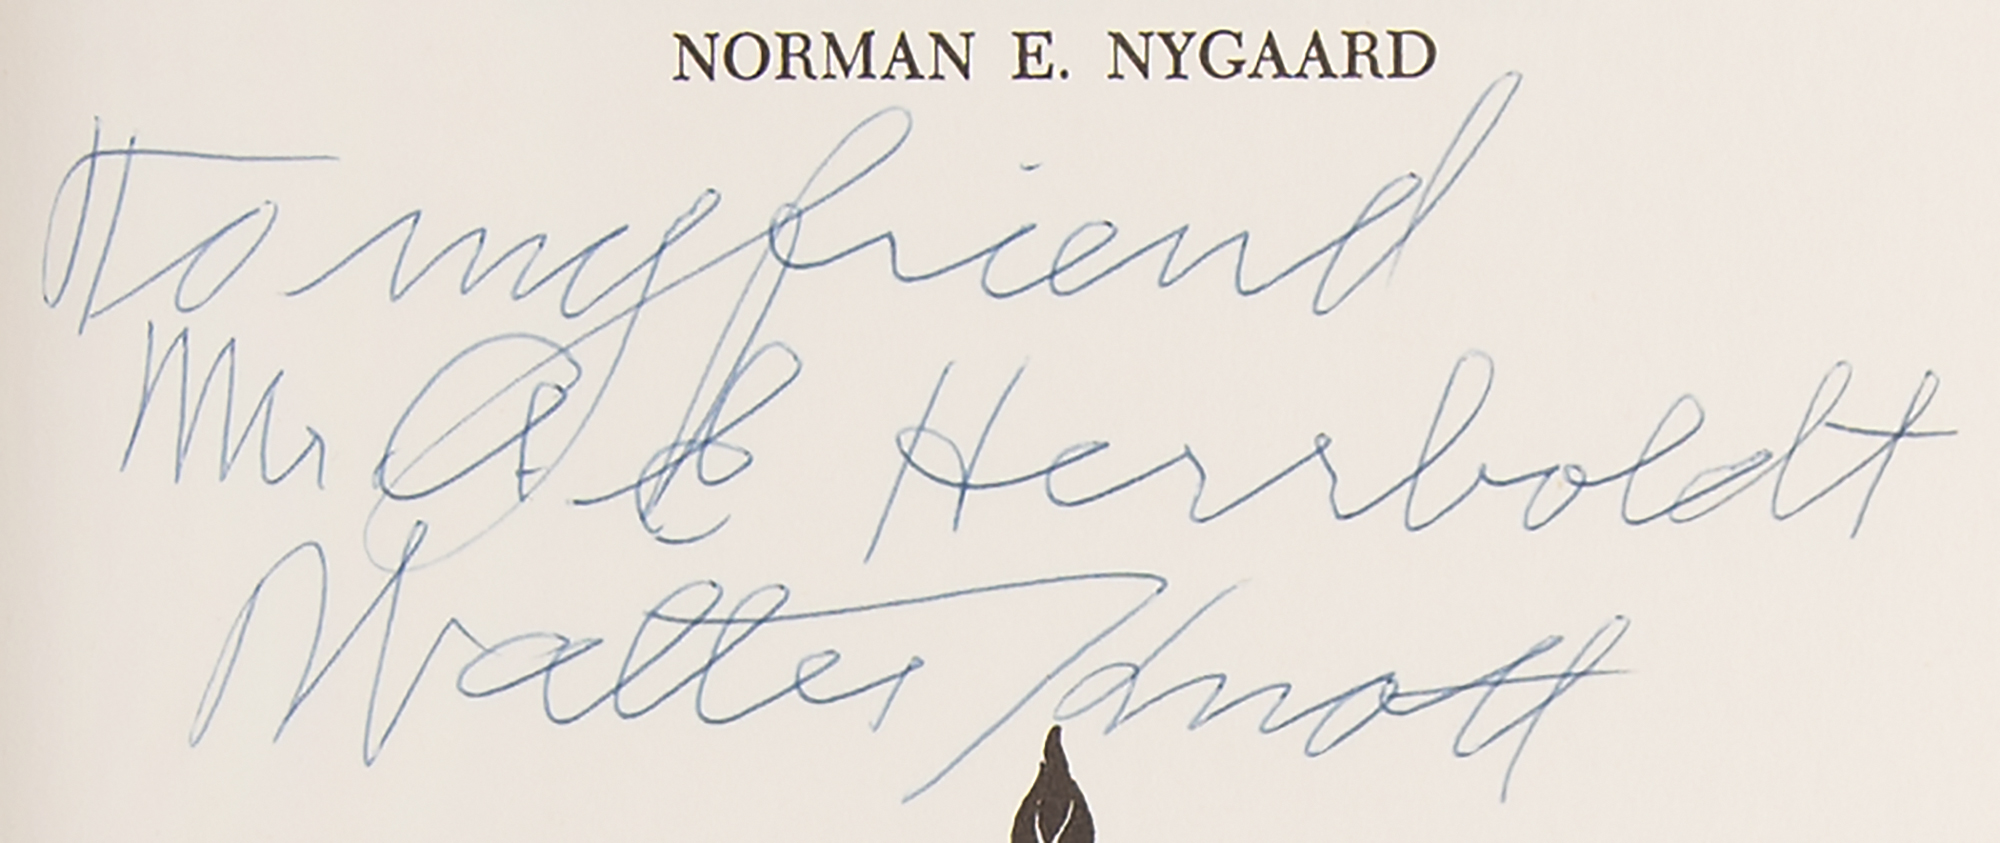 NORMAN E. NYGAARD
To my friend
Mr A C Herrboldt
Walter Knott